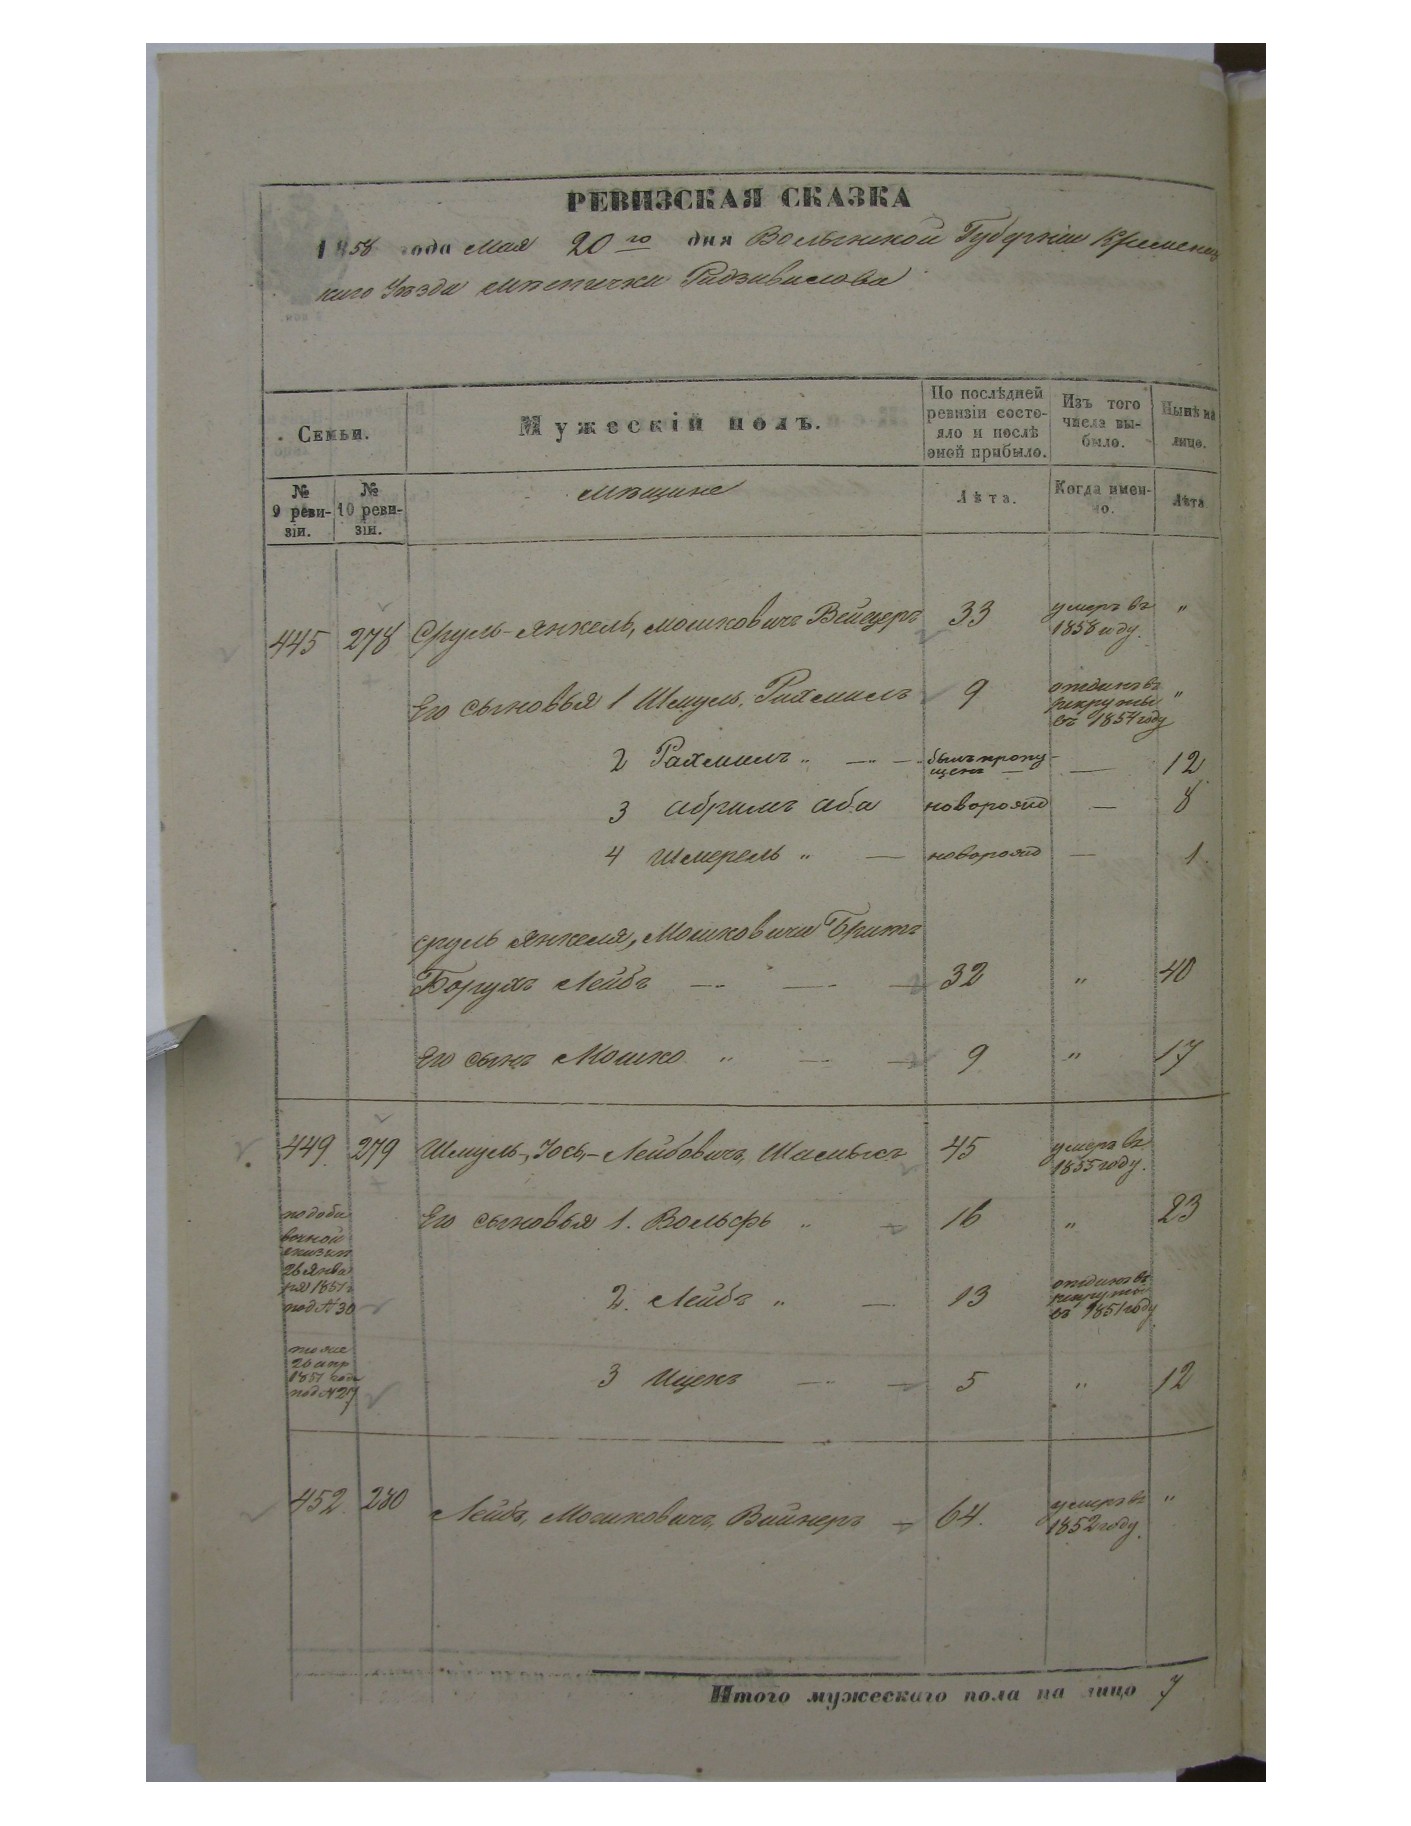 РЕВИЗСКАЯ СКАЗКА
1858 года Мая 20го дня Волынской Губерніи Кременец
каго Уезда местечка Радзивилова
Семьи.
Мужескій полъ.
По послѣдней ревизіи состо-
яло и послѣ
оной прибыло.
Изъ того
числа вы-
было.
Нынѣ на
лицо.
№
9 реви-
зіи.
№
10 реви-
зіи.
мѣщане
Лѣта.
Когда имен-
но.
Лѣта
445 278 Сруль-Янкель, Мошковичъ Вейцеръ 33 умеръ въ 1858 году. "
Его сыновья 1 Шмуль, Рахмилъ 9 отданъ въ рекруты въ 1854 году "
2 Рахмилъ " былъ пропущенъ — 12
3 Абрамъ Аба новорожд — 8
4 Шмерель " — новорожд — 1
Сруль Янкеля, Мошковича Братъ
Борухъ Лейбъ 32 " 40
Его сынъ Мошко " 9 " 17
449 279 Шмуль-, Іось,- Лейбовичъ, 45 умеръ въ 1855 году.
Его сыновья 1. Вольфъ " 16 " 23
26 Янва
ря 1851
под № 30
2. Лейбъ " — 13 отданъ въ рекруты въ 1851 году
тоже
26 апр
1851 года
под № 27
3 Ицекъ 5 " 12
452. 280 Лейбъ, Мошковичъ, Вайнеръ 64. умеръ въ 1852 году. "
Итого мужескаго пола на лицо 7